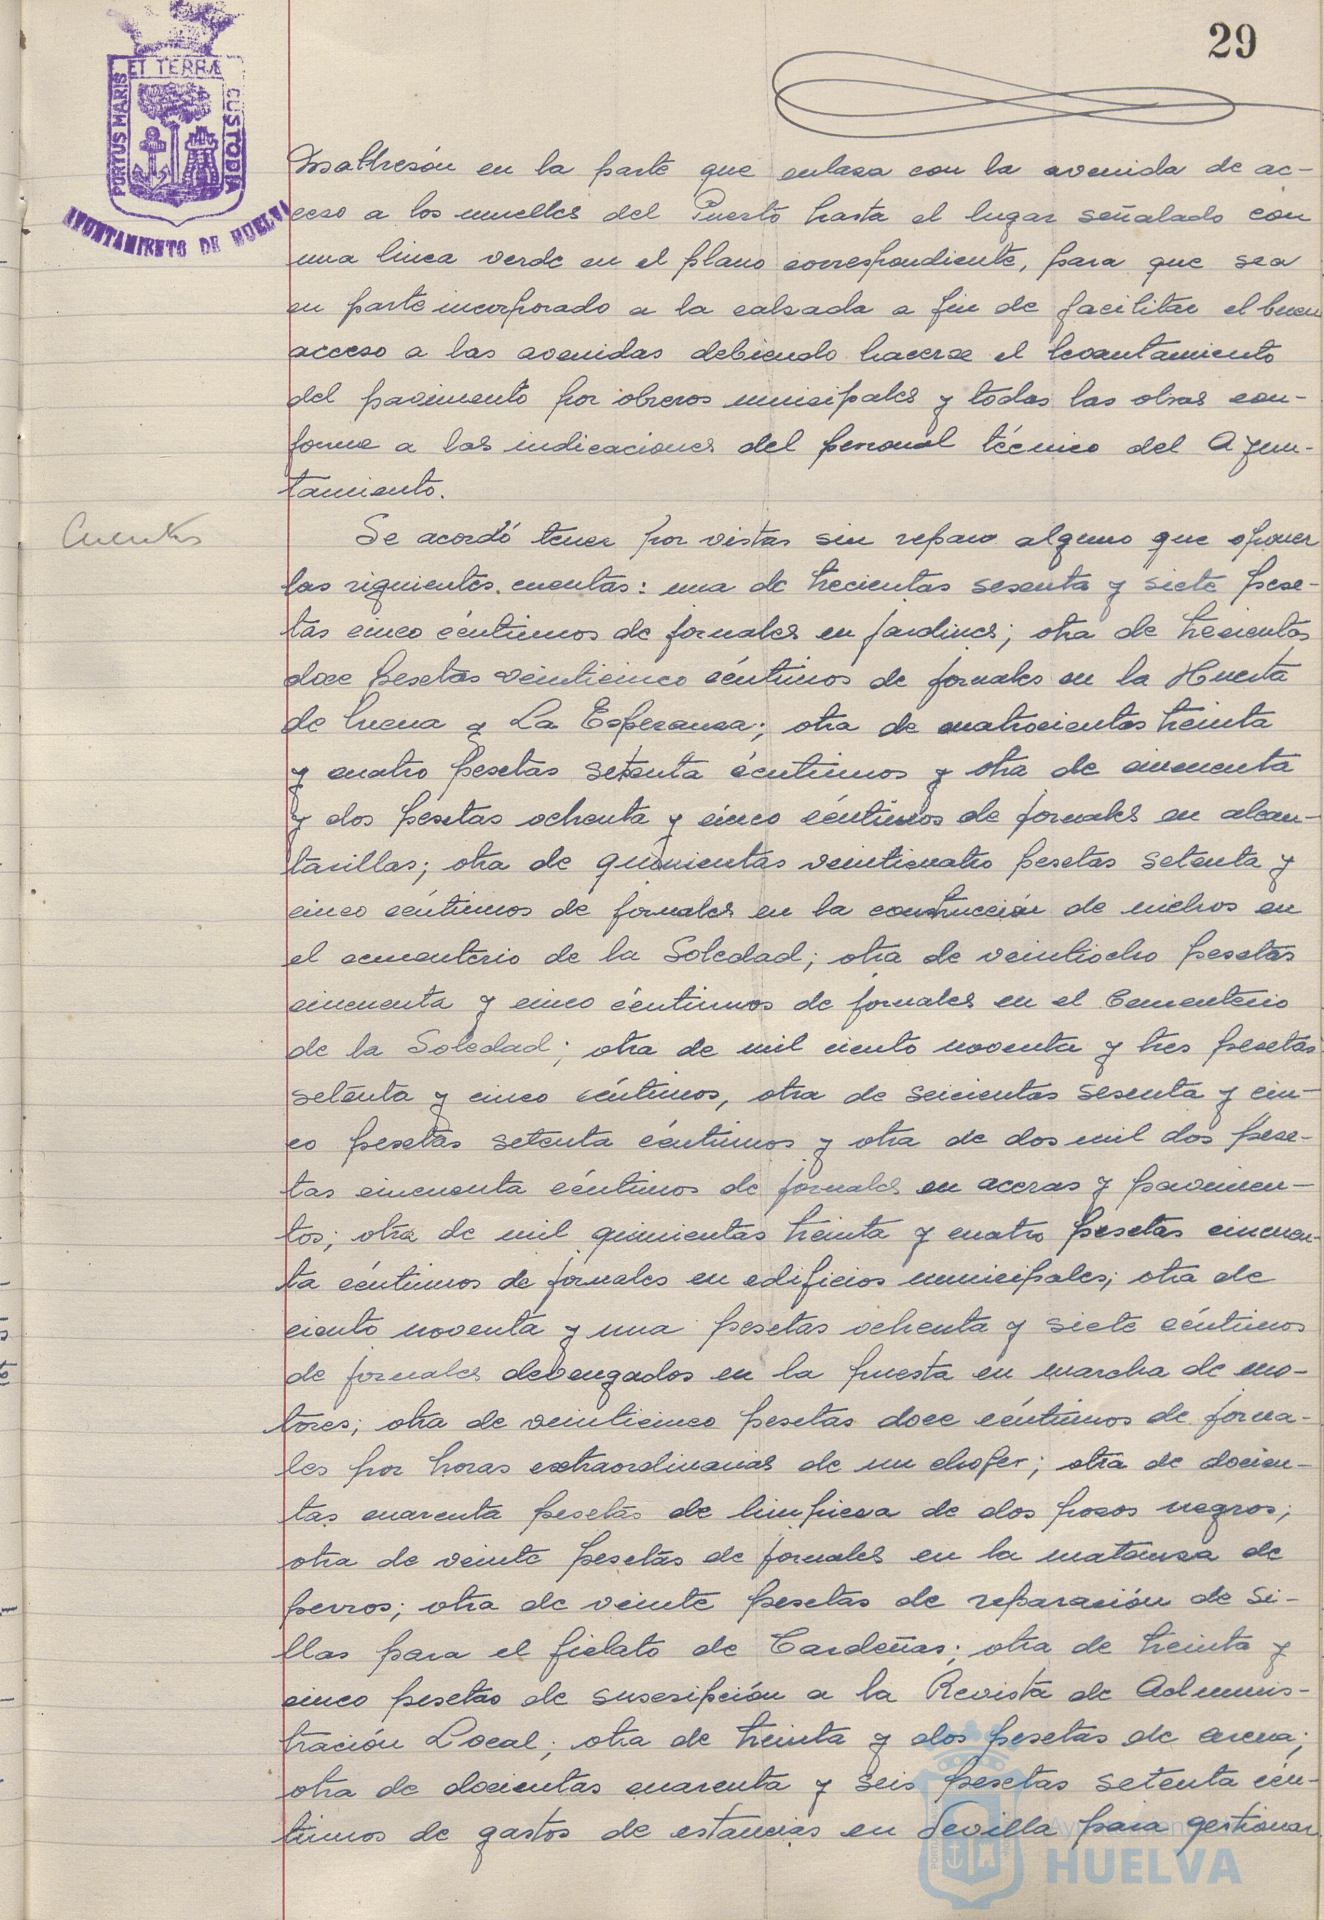 29
ET TERRÆ
PORTUS MARIS
CUSTODIA
AYUNTAMIENTO DE HUELVA
en la parte que enlaza con la avenida de ac-
ceso a los muelles del Puerto hasta el lugar señalado con
una linea verde en el plano correspondiente, para que sea
en parte incorporado a la calzada a fin de facilitar el buen
acceso a las avenidas debiendo hacerse el levantamiento
del pavimento por obreros municipales y todas las obras con-
forme a las indicaciones del personal técnico del Ayun-
tamiento.
Cuentas
Se acordó tener por vistas sin reparo alguno que oponer
las siguientes cuentas: una de trecientas sesenta y siete pese-
tas cinco céntimos de jornales en jardines; otra de trecientas
doce pesetas veinticinco céntimos de jornales en la Huerta
de Mena y La Esperanza; otra de cuatrocientas treinta
y cuatro pesetas setenta céntimos y otra de cincuenta
y dos pesetas ochenta y cinco céntimos de jornales en alcan-
tarillas; otra de quinientas veinticuatro pesetas setenta y
cinco céntimos de jornales en la construcción de nichos en
el cementerio de la Soledad; otra de veintiocho pesetas
cincuenta y cinco céntimos de jornales en el Cementerio
de la Soledad; otra de mil ciento noventa y tres pesetas
setenta y cinco céntimos, otra de seicientas sesenta y cin-
co pesetas setenta céntimos y otra de dos mil dos pese-
tas cincuenta céntimos de jornales en aceras y pavimen-
tos; otra de mil quinientas treinta y cuatro pesetas cincuen-
ta céntimos de jornales en edificios municipales; otra de
ciento noventa y una pesetas ochenta y siete céntimos
de jornales debengados en la puesta en marcha de mo-
tores; otra de veinticinco pesetas doce céntimos de jorna-
les por horas extraordinarias de un chofer; otra de docien-
tas cuarenta pesetas de limpieza de dos pozos negros;
otra de veinte pesetas de jornales en la matanza de
perros; otra de veinte pesetas de reparación de si-
llas para el fielato de Cardeñas; otra de treinta y
cinco pesetas de suscripción a la Revista de Adminis-
tración Local; otra de treinta y dos pesetas de arena;
otra de docientas cuarenta y seis pesetas setenta cén-
timos de gastos de estancias en Sevilla para gestionar
HUELVA